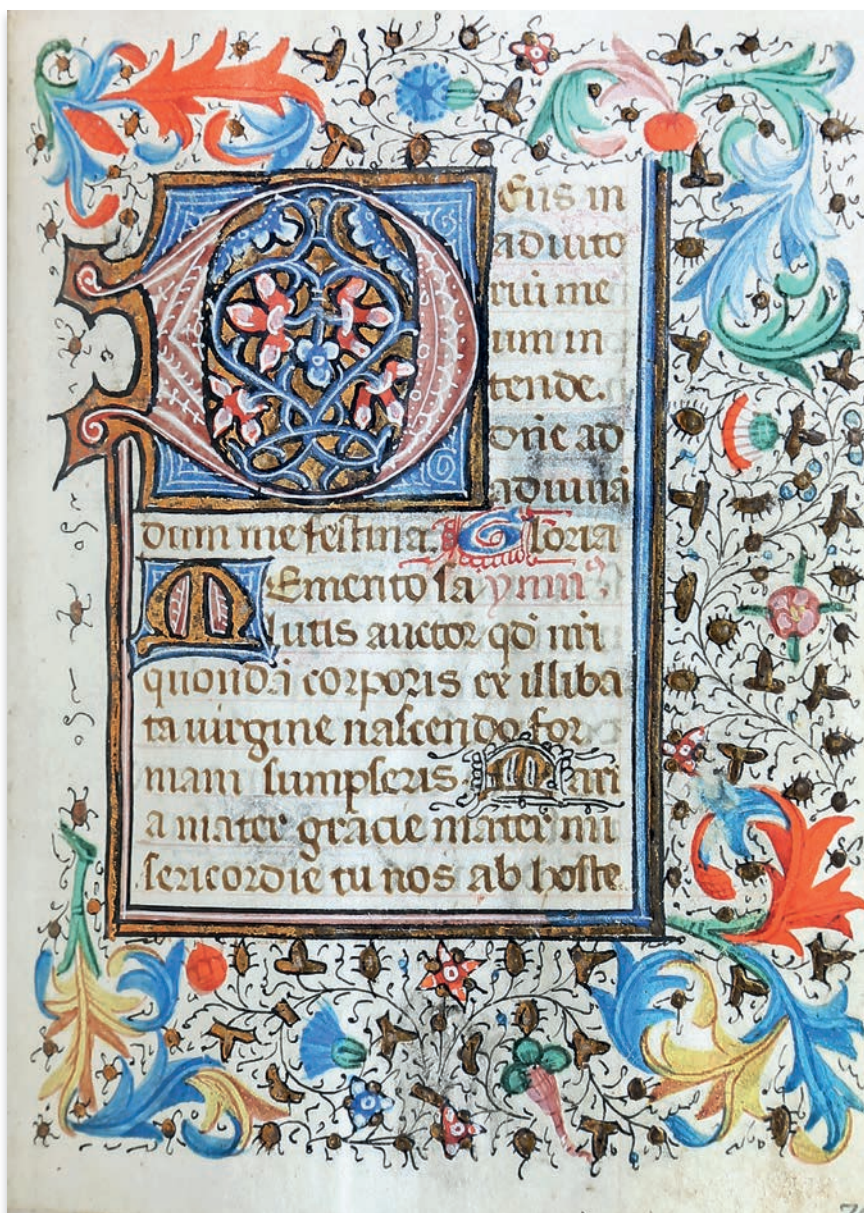 Deus in
adiuto
rui me
um in
tende.
dñe ad
adiuuã
dum me festina. Gloria
Memento sa ymnꝰ.
lutis auctor qđ nri
quondã corporis ex illiba
ta uirgine nascendo for
mam sumpseris. Mari
a mater gracie mater mi
sericordie tu nos ab hoste